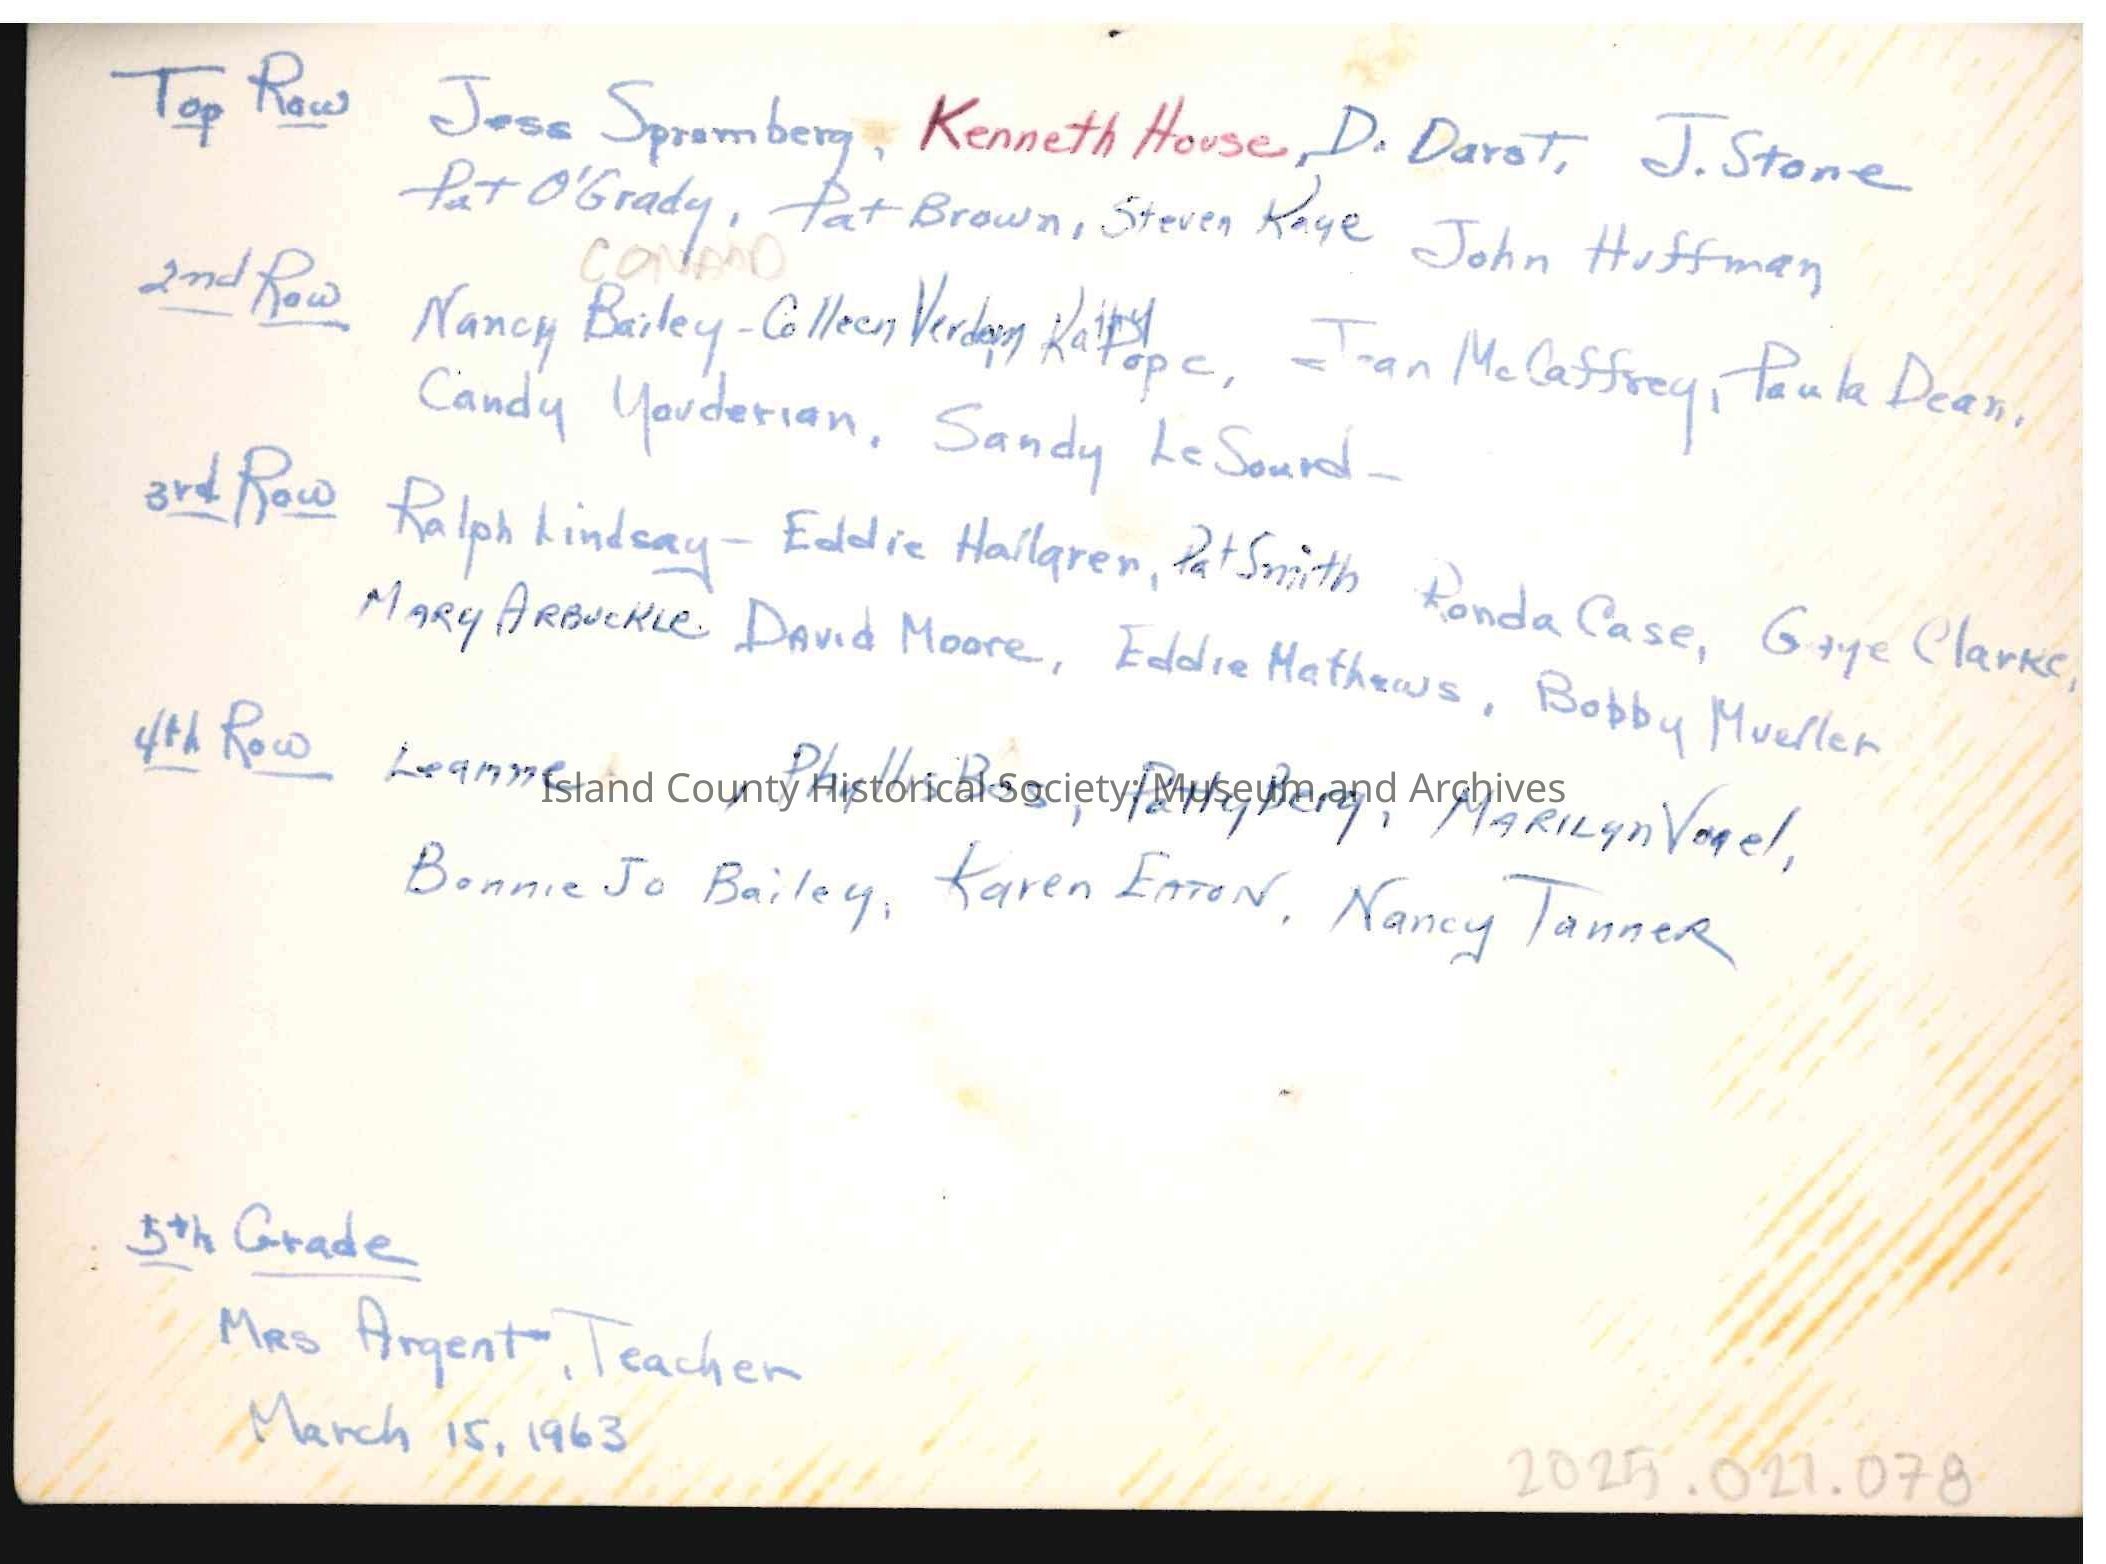 Top Row Jess Spromberg, Kenneth House, D. Darst, J. Stone
Pat O'Grady, Pat Brown, Steven Kaye John Huffman
CONARD
2nd Row Nancy Bailey - Colleen Verdom Kathy Pope, - Jran McCaffrey, Paula Dean,
Candy Youderian, Sandy LeSourd -
3rd Row Ralph Lindsay - Eddie Hallgren, Pat Smith Ronda Case, Gaye Clarke,
MARY ARBUCKLE David Moore, Eddie Mathews, Bobby Mueller
4th Row Leanne , Phyllis Bos, Patty Berg, MARILYN Vogel,
Island County Historical Society: Museum and Archives
Bonnie Jo Bailey, Karen EATON, Nancy TanneR
5th Grade
MRS Argent, Teacher
March 15, 1963
2025.021.078